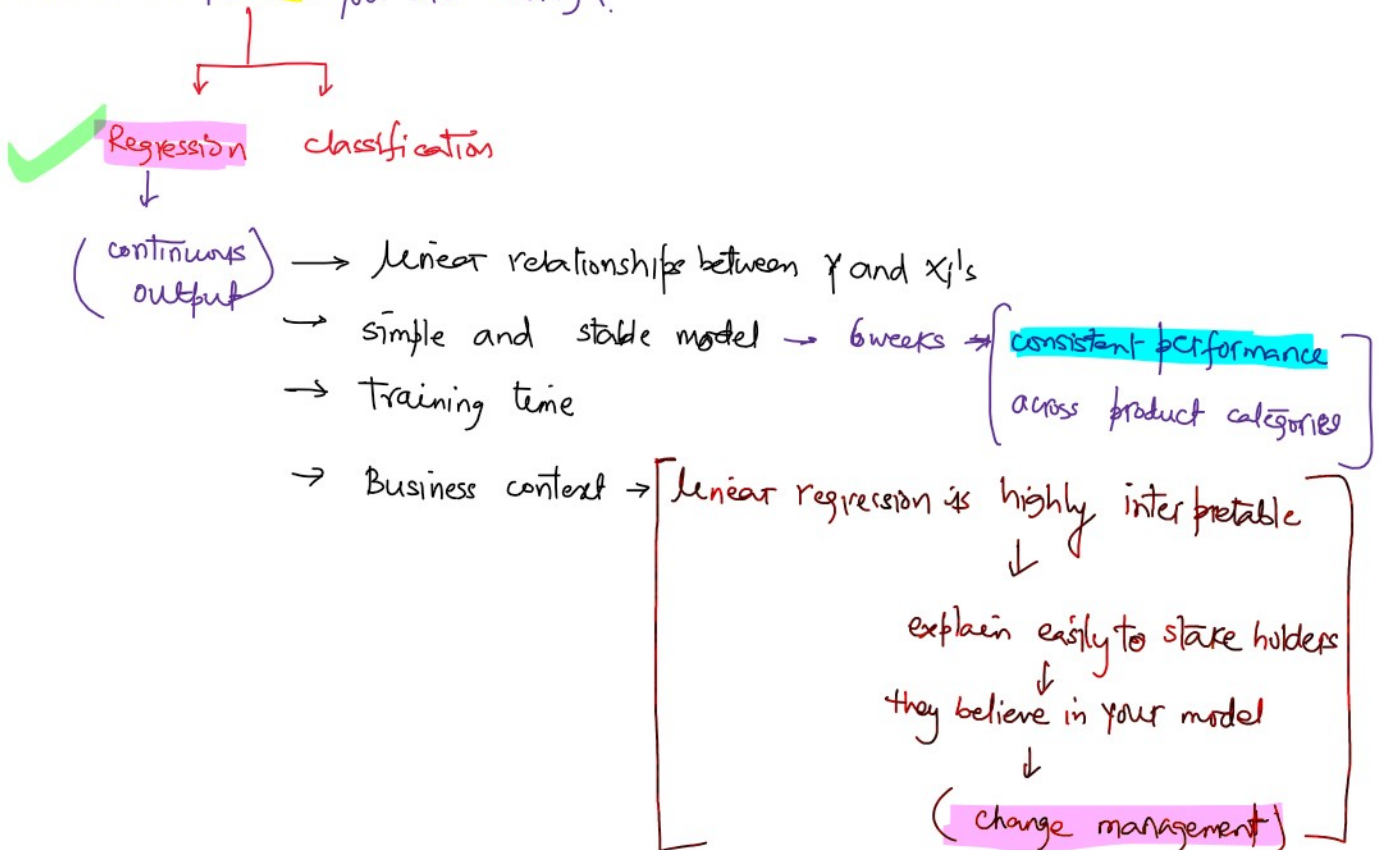 Regression classification
continuous
output
→ linear relationships between Y and Xi's
→ simple and stable model → 6 weeks → consistent performance
across product categories
→ Training time
→ Business context → linear regression is highly interpretable
explain easily to stake holders
they believe in your model
(change management)